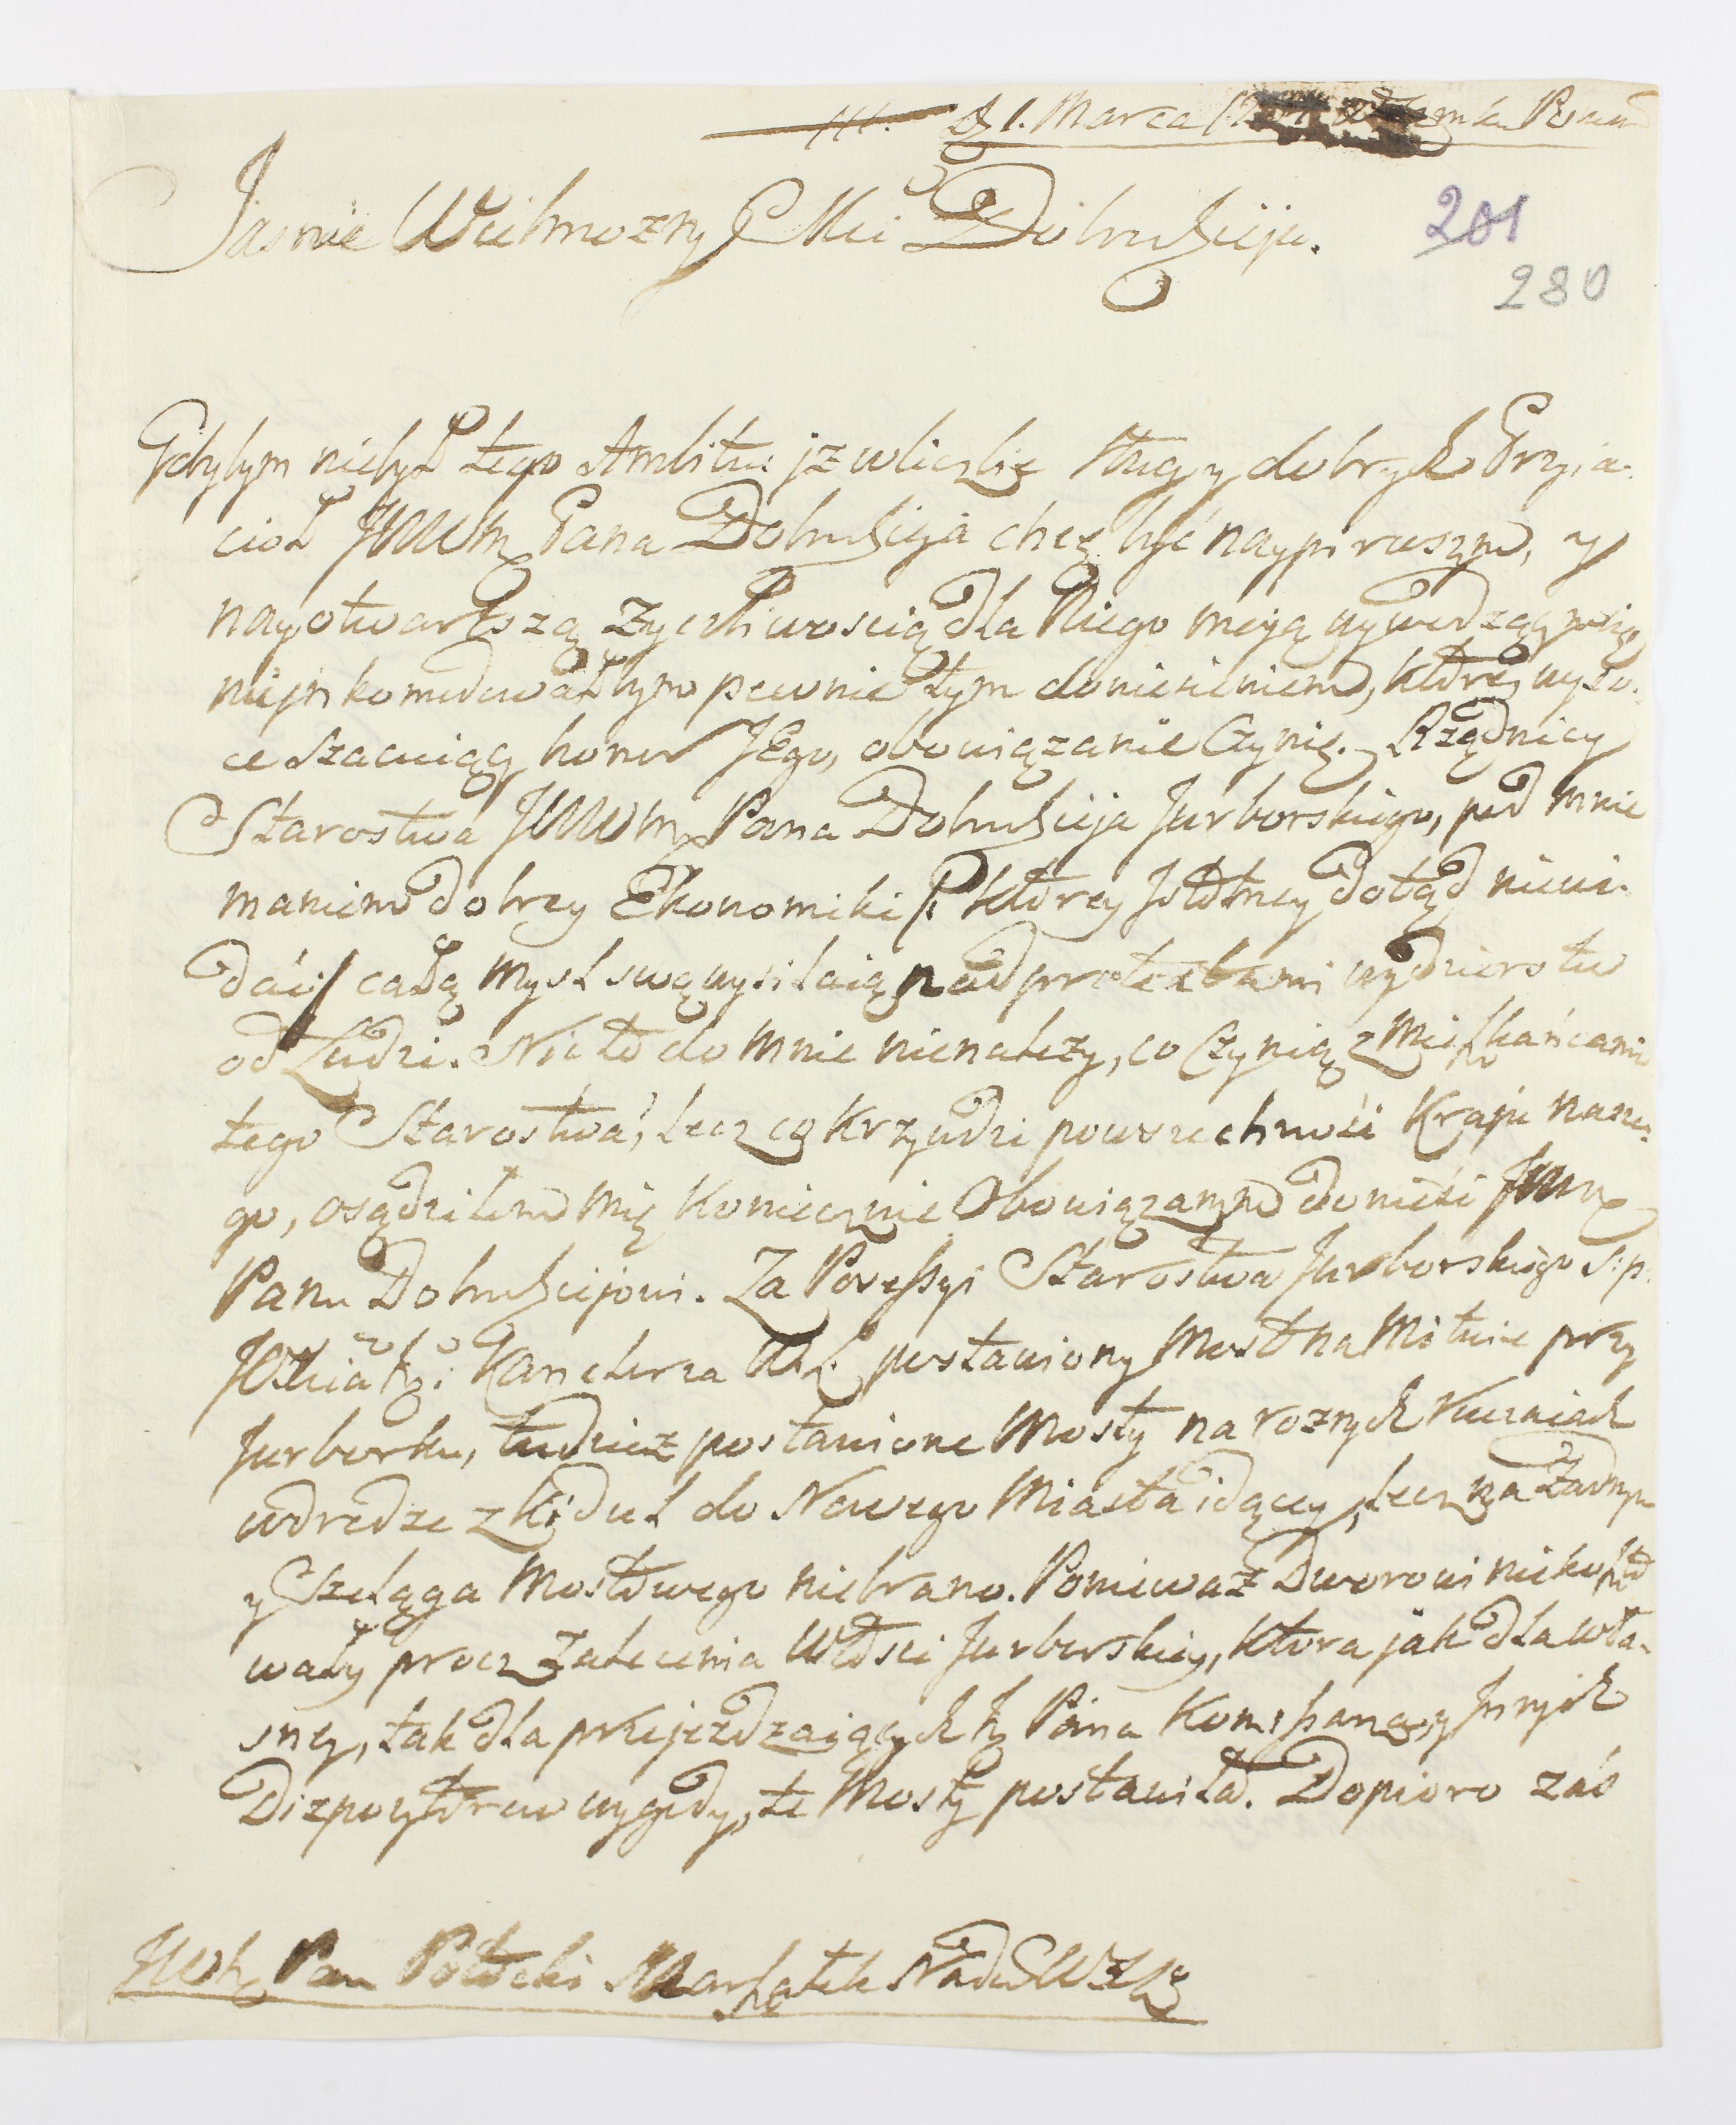 D 1. Marca
201
Jasnie Wielmozny Mci Dobrodzieju.
280
Gdybym niebył tego Ambitu: jz wliczbie sług y dobrych Przyia-
cioł JWWm Pana Dobrodzieja chcę być naypierwszym, y
nayotwartszą zyczliwoscią dla Niego moią wywodzący się,
nieinkomodowałbym pewnie tym doniesieniem, ktore wyso-
ce szacuiąc honor JEgo, obowiązanie Czynię. Rządnicy
Starostwa JWWm Pana Dobrodzieja Jurborskiego, pod mnie
maniem dobrey Ekonomiki /: ktorey Jstotney dotąd niewi-
dać :/ całą mysl swą wysilaią nad protextami wydzierstw
od Ludzi. Nic to do mnie nienalezy, co Czynią z Mieszkańcami
tego Starostwa, Lecz co Krzywdzi powszechność Kraju nasze-
go, osądziłem mię Koniecznie Obowiązanym donieść JWW
Panu Dobrodziejowi. Za Possessyi Starostwa Jurborskiego s: p:
Kanclerza postawiony Most na Mitwie przy
Jurborku, tudziez postawione Mosty na roznych Rucziach
wdrodze z Kidul do Nowego Miasta idącey, Lecz za zadnym
y Szeląga Mostowego niebrano. Poniewaz Dworowi niekoszto-
wały procz zalecenia Włosci Jurborskiey, ktora jak dla wła-
sney, tak dla przejezdzaiących Pana Kommissarza, y Jnnych
Dizpozytorow wygody, te Mosty postawiła. Dopioro zas
JWW Pan Potocki Marszałek Nadw